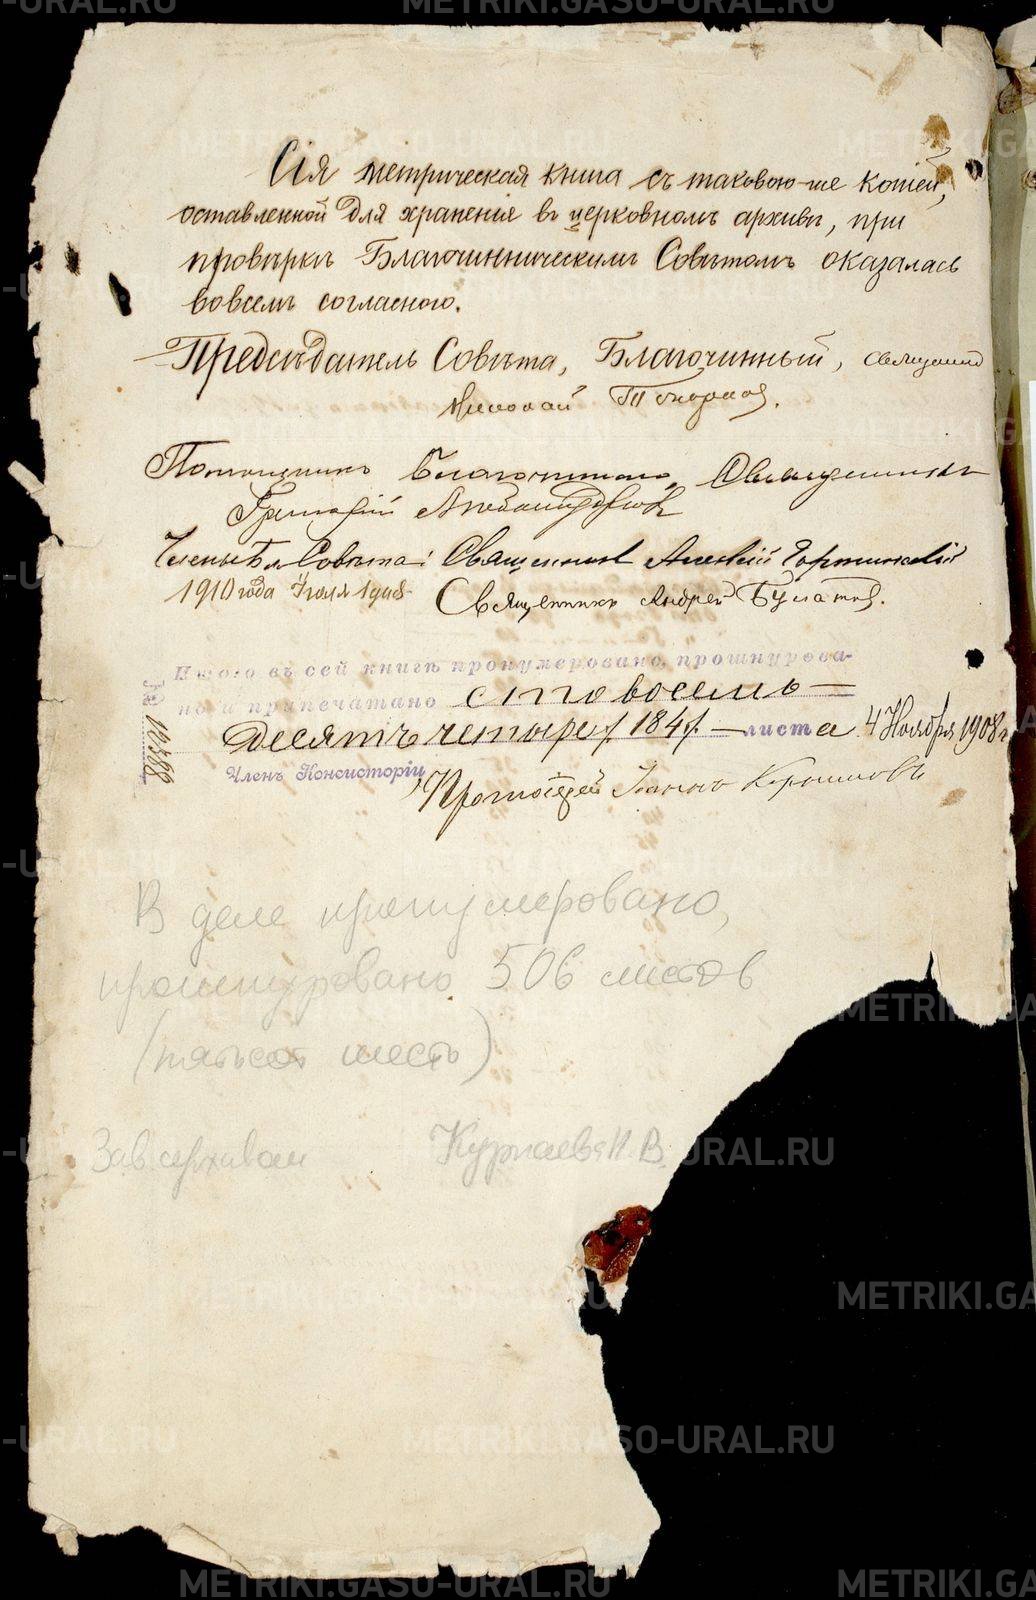 Сія метрическая книга съ таковою-же копіей,
оставленной для храненія въ церковномъ архивѣ, при
провѣркѣ Благочинническимъ Совѣтомъ оказалась
вовсемъ согласною.
Предсѣдатель Совѣта, Благочинный, священник
Николай
Помощникъ Благочиннаго, Священникъ
Григорій
Члены Совѣта: Священник Алексій
1910 года Іюля 1 дня Священникъ Андрей Булатов.
Итого въ сей книгѣ пронумеровано, прошнурова-
но и припечатано сто восемь-
десятъ четыре /184/ листа 4 Ноября 1908 г
№ 10582
Членъ Консисторіи
Протоіерей Іоаннъ
В деле пронумеровано,
прошнуровано 506 листов
(пятьсот шесть)
Зав архивом Курпаева Н. В.
METRIKI.GASO-URAL.RU